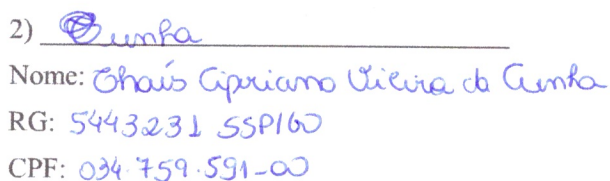 2) Cunha
Nome: Thaís Cipriano Vieira da Cunha
RG: 5443231 SSP/GO
CPF: 034.759.591-00